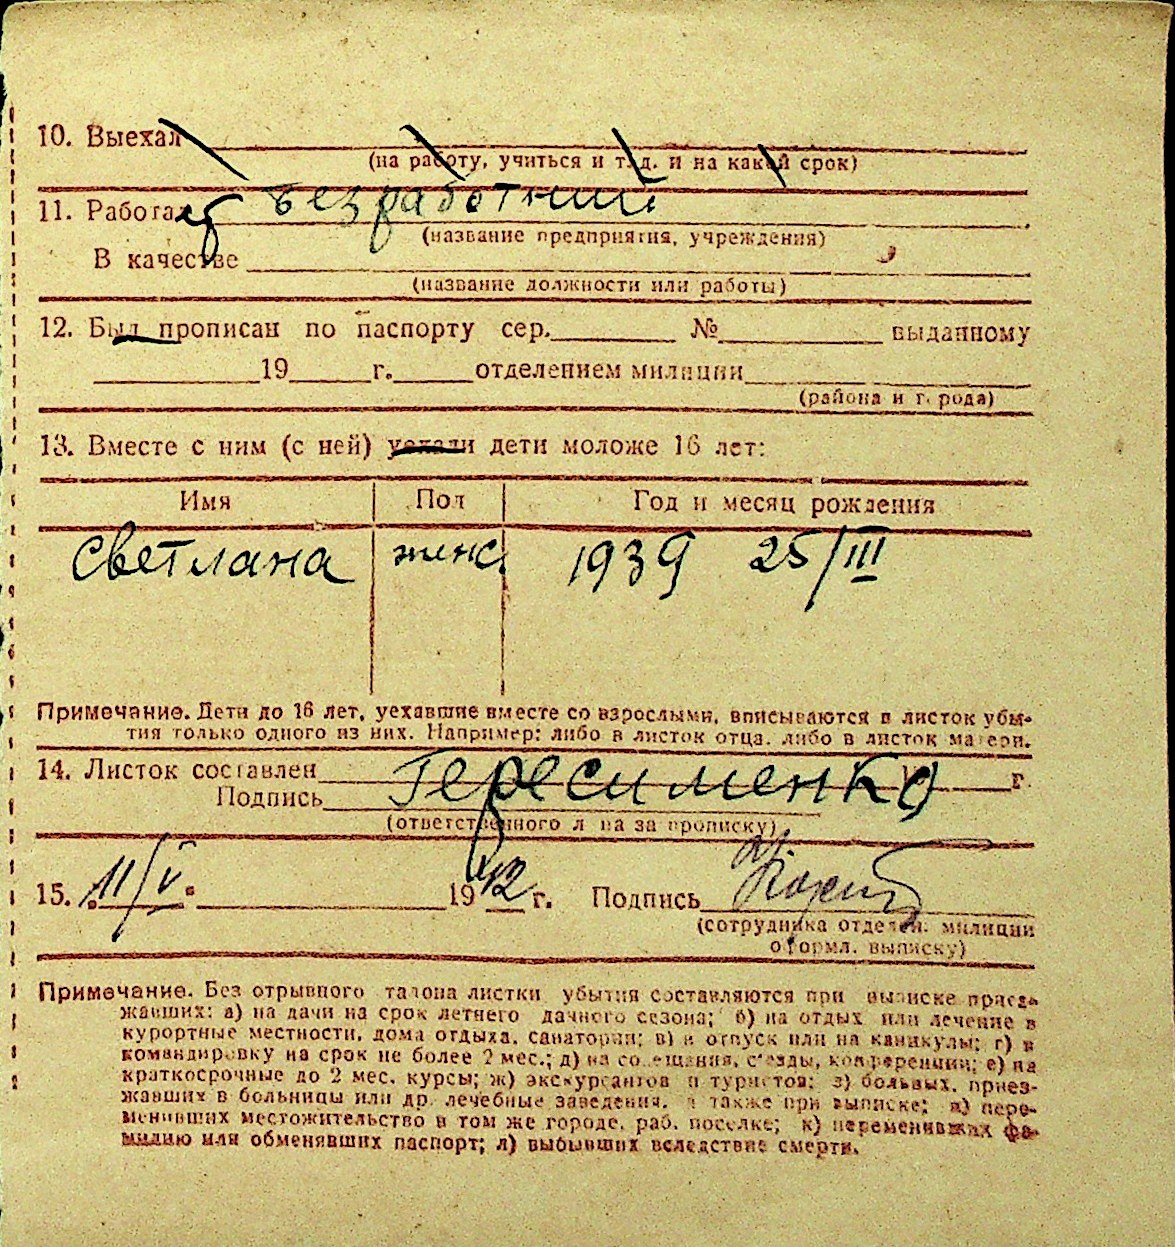 10. Выехал
(на работу, учиться и т. д. и на какой срок)
11. Работает безработний
(название предприятия, учреждения)
В качестве
(название должности или работы)
12. Был прописан по паспорту сер. № выданному
19 г. отделением милиции
(района и города)
13. Вместе с ним (с ней) уехали дети моложе 16 лет:
Имя Пол Год и месяц рождения
Светлана женс. 1939 25/III
Примечание. Дети до 16 лет, уехавшие вместе со взрослыми, вписываются в листок убы-
тия только одного из них. Например: либо в листок отца, либо в листок матери.
14. Листок составлен г.
Подпись Гересименко
(ответственного лица за прописку)
15. 11/V. 1942 г. Подпись
(сотрудника отделен. милиции
оформл. выписку)
Примечание. Без отрывного талона листки убытия составляются при выписке приез-
жавших: а) на дачи на срок летнего дачного сезона; б) на отдых или лечение в
курортные местности, дома отдыха, санатории; в) в отпуск или на каникулы; г) в
командировку на срок не более 2 мес.; д) на совещания, с'езды, конференции; е) на
краткосрочные до 2 мес. курсы; ж) экскурсантов и туристов; з) больных, приез-
жавших в больницы или др. лечебные заведения, а также при выписке; и) пере-
менивших местожительство в том же городе, раб. поселке; к) переменивших фа-
милию или обменявших паспорт; л) выбывших вследствие смерти.